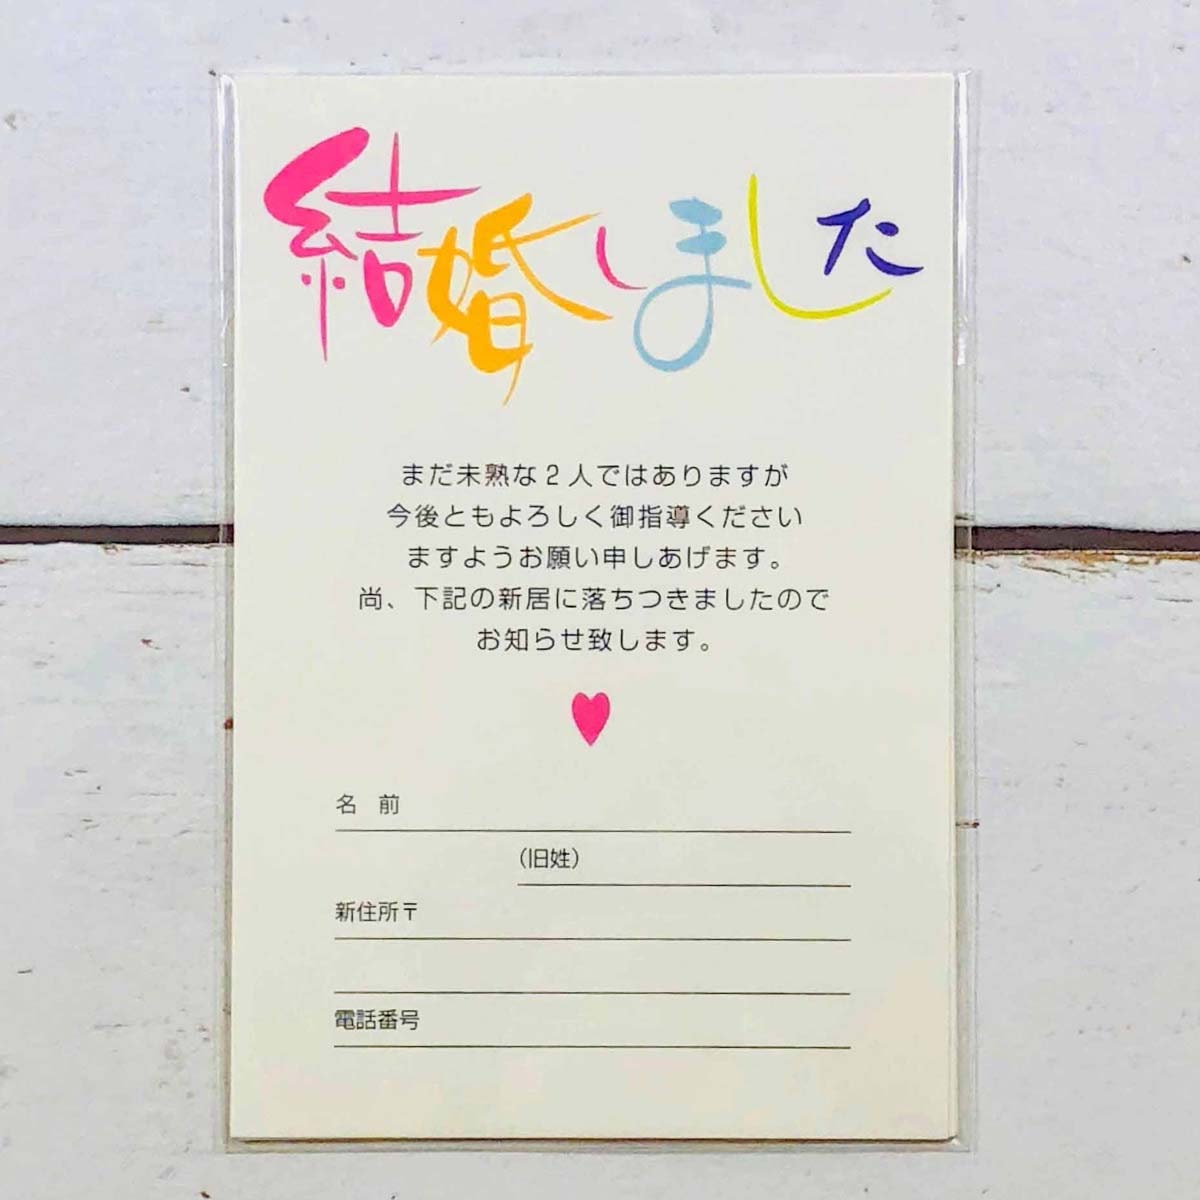 結婚しました
まだ未熟な２人ではありますが
今後ともよろしく御指導ください
ますようお願い申しあげます。
尚、下記の新居に落ちつきましたので
お知らせ致します。
名　前
(旧姓)
新住所〒
電話番号